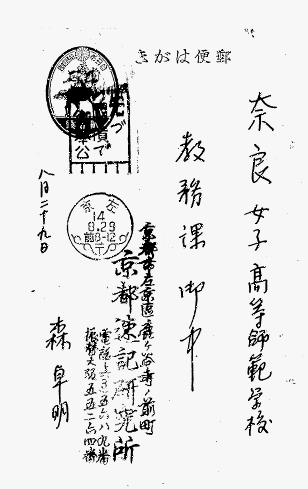 郵便はがき
奈良女子高等師範学校
教務課 御中
先づ
公債で
左京
14
8.29
前8-12
八月二十九日
京都市左京區鹿ヶ谷寺ノ前町
京都速記研究所
森 卓明